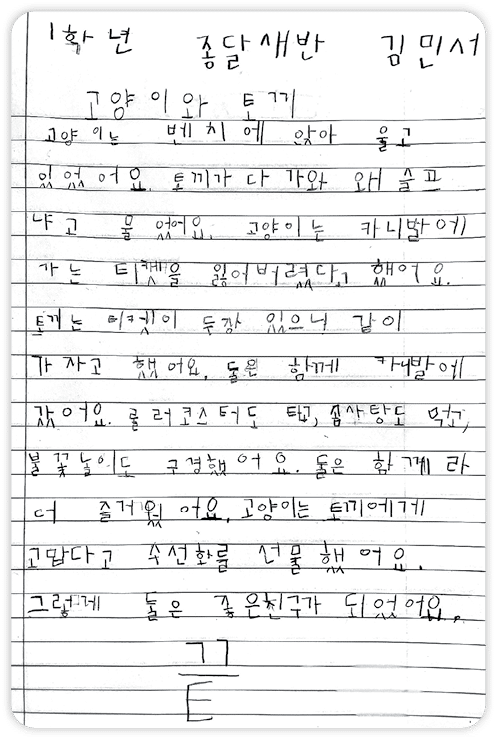 1학년 종달새반 김민서
고양이와 토끼
고양이는 벤치에 앉아 울고
있었어요. 토끼가 다가와 왜 슬프
냐고 물었어요. 고양이는 카니발에
가는 티켓을 잃어버렸다고 했어요.
토끼는 티켓이 두장 있으니 같이
가자고 했어요. 둘은 함께 카니발에
갔어요. 롤러코스터도 타고, 솜사탕도 먹고,
불꽃놀이도 구경했어요. 둘은 함께라
더 즐거웠어요. 고양이는 토끼에게
고맙다고 수선화를 선물했어요.
그렇게 둘은 좋은친구가 되었어요.
끝